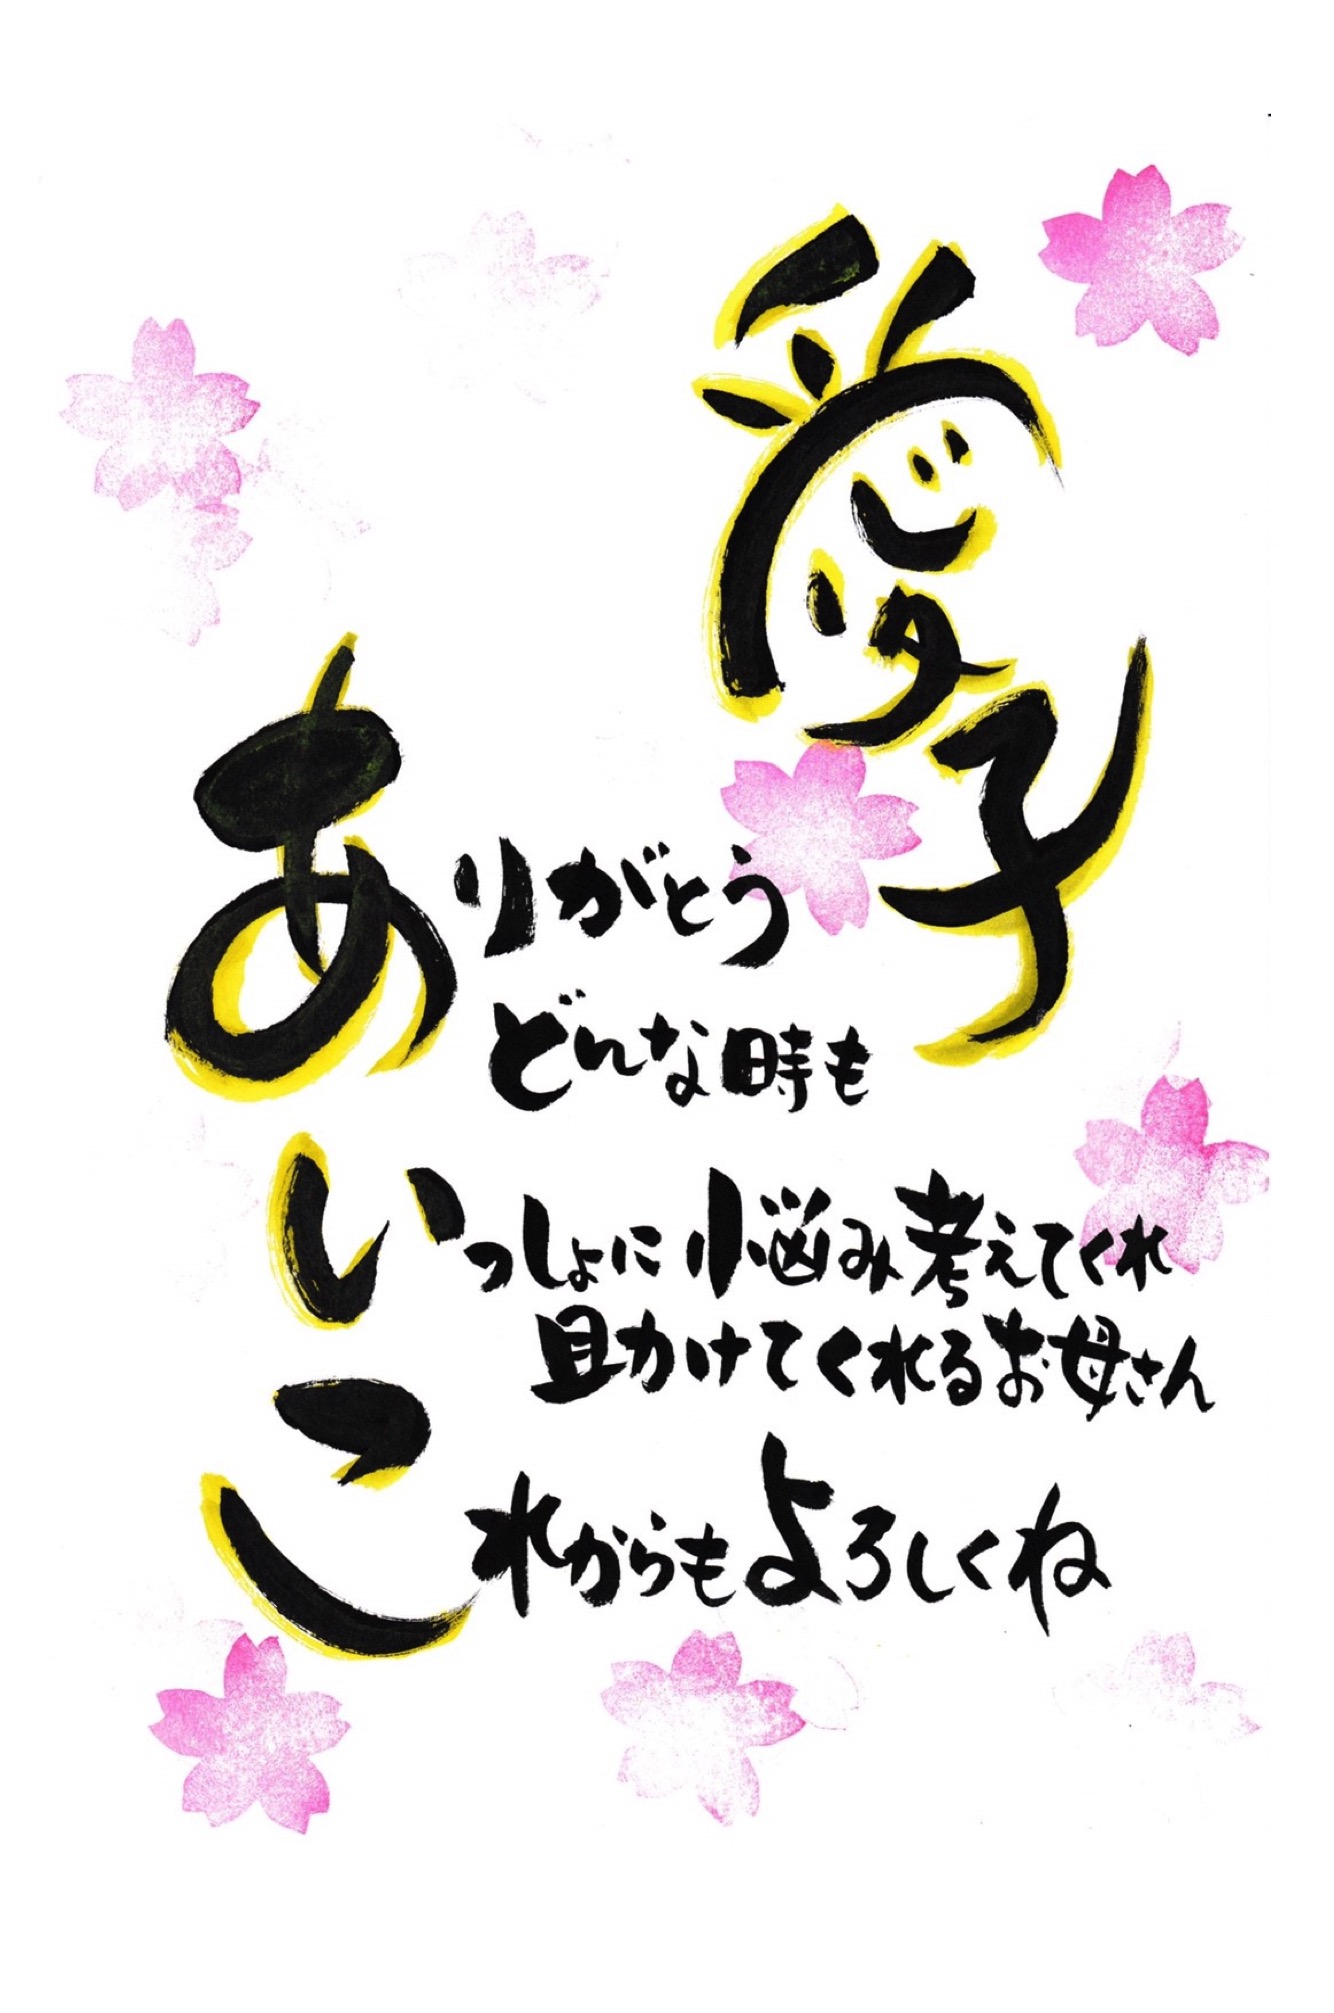 愛子
ありがとう
どんな時も
いっしょに悩み考えてくれ
助けてくれるお母さん
これからもよろしくね